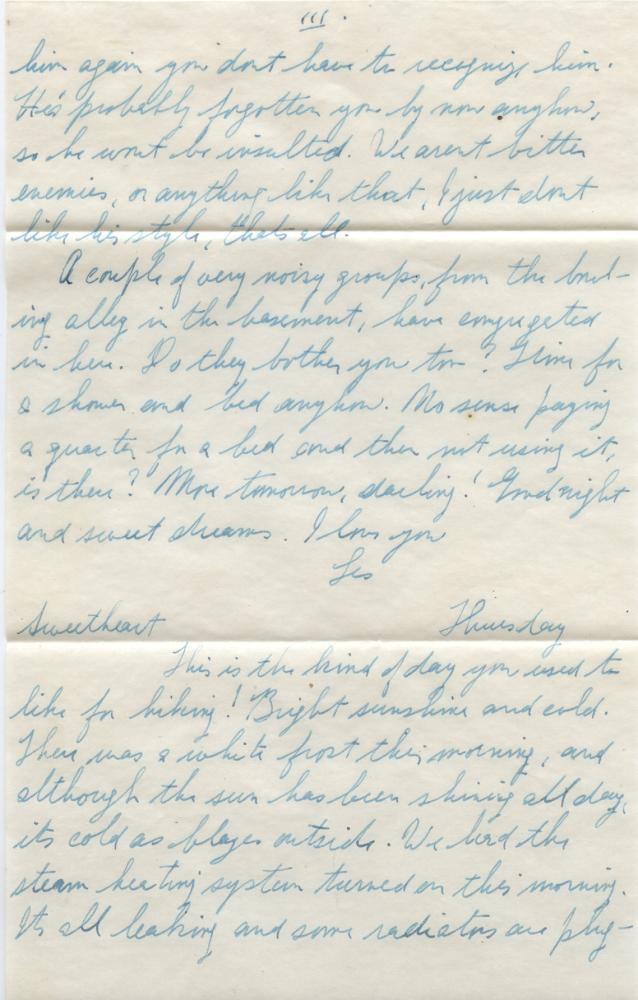 III.
him again you dont have to recognize him.
He's probably forgotten you by now anyhow,
so he wont be insulted. We arent bitter
enemies, or anything like that, I just dont
like his style, thats all.
A couple of very noisy groups, from the bowl-
ing alley in the basement, have congregated
in here. Do they bother you too? Time for
a shower and bed anyhow. No sense paying
a quarter for a bed and then not using it,
is there? More tomorrow, darling! Goodnight
and sweet dreams. I love you
Les
Sweetheart Thursday
This is the kind of day you used to
like for hiking! Bright sunshine and cold.
There was a white frost this morning, and
although the sun has been shining all day,
its cold as blazes outside. We had the
steam heating system turned on this morning.
Its all leaking and some radiators are plug-